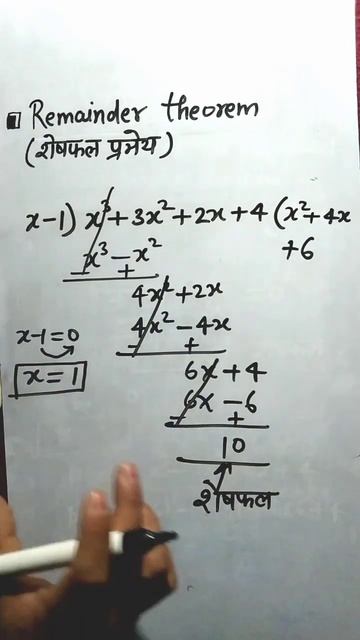 Remainder theorem
(शेषफल प्रमेय)
x-1) x³+3x²+2x+4 (x²+4x
+6
x³-x²
- +
4x²+2x
4x²-4x
- +
x-1=0
x=1
6x+4
6x-6
- +
10
शेषफल